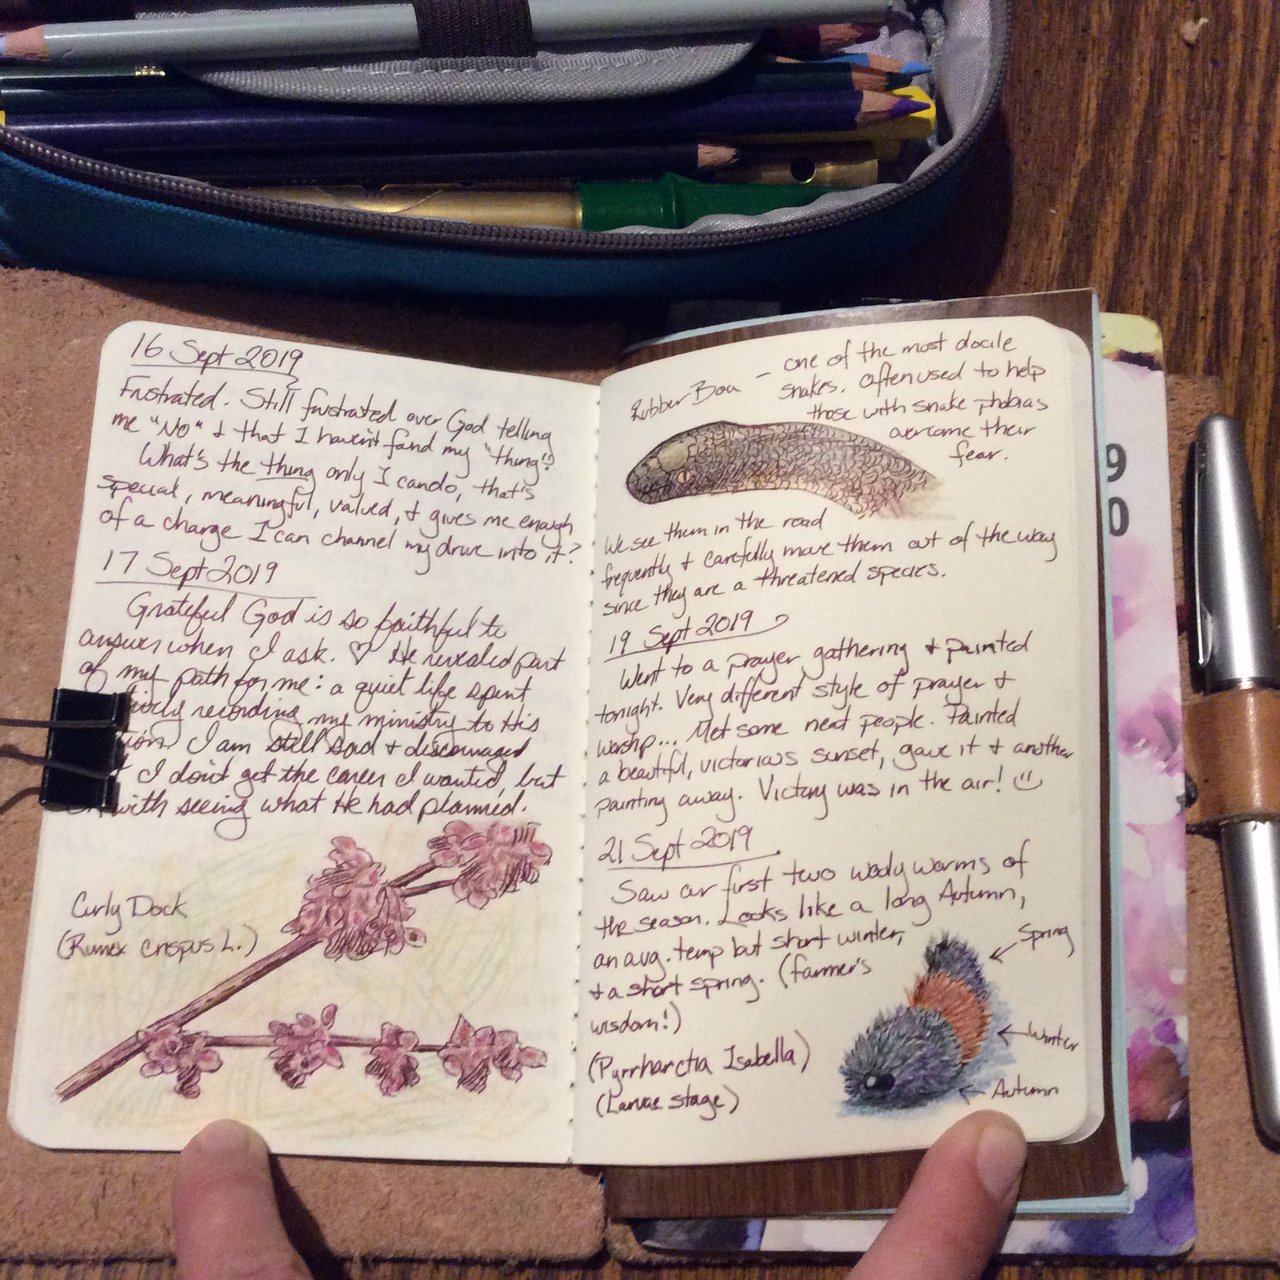 16 Sept 2019
Frustrated. Still frustrated over God telling
me "No" & that I haven't found my "thing".
What's the thing only I can do, that's
special, meaningful, valued, & gives me enough
of a charge I can channel my drive into it?
17 Sept 2019
Grateful God is so faithful to
answer when I ask. ♡ He revealed part
of my path for me: a quiet life spent
recording my ministry to His
I am still sad & discouraged
I don't get the career I wanted, but
with seeing what He had planned.
Curly Dock
(Rumex crispus L.)
Rubber Boa – one of the most docile
snakes. Often used to help
those with snake phobias
overcome their
fear.
We see them in the road
frequently & carefully move them out of the way
since they are a threatened species.
19 Sept 2019
Went to a prayer gathering & painted
tonight. Very different style of prayer &
worship... Met some neat people. Painted
a beautiful, victorious sunset, gave it & another
painting away. Victory was in the air! ☺
21 Sept 2019
Saw our first two wooly worms of
the season. Looks like a long Autumn,
an avg. temp but short winter,
& a short spring. (farmer's
wisdom!)
(Pyrrharctia Isabella)
(Larvae stage)
Spring
Winter
Autumn
9
0